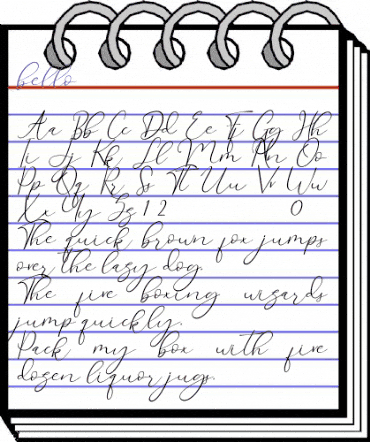 bello
Aa Bb Cc Dd Ee Ff Gg Hh
Ii Jj Kk Ll Mm Nn Oo
Pp Qq Rr Ss Tt Uu Vv Ww
Xx Yy Zz 1 2 0
The quick brown fox jumps
over the lazy dog.
The five boxing wizards
jump quickly.
Pack my box with five
dozen liquor jugs.